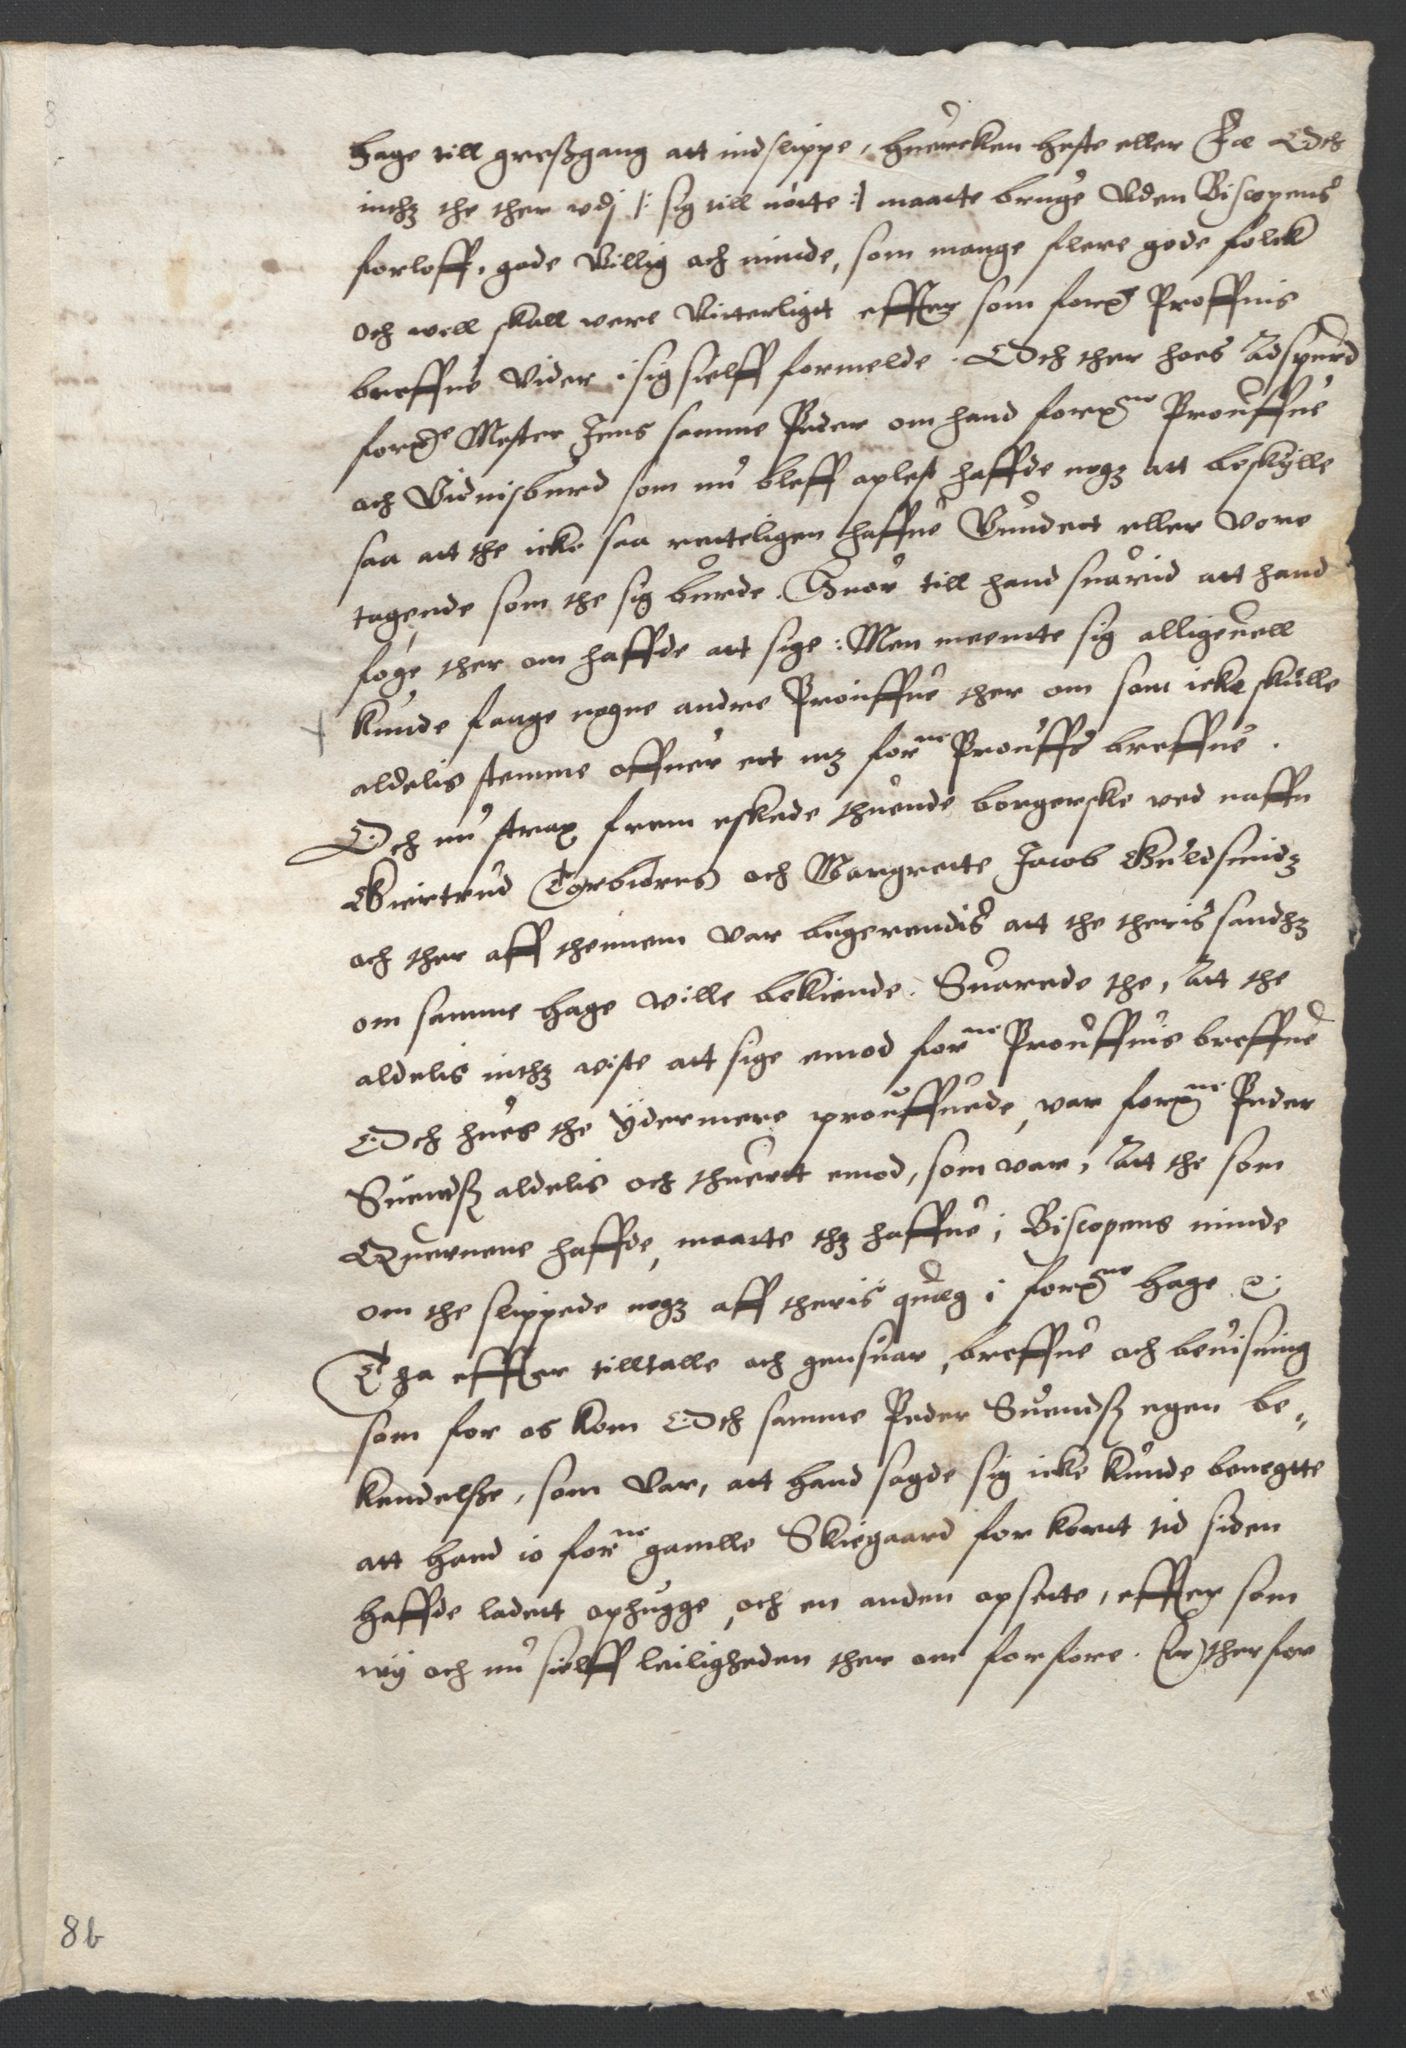 hage till greßgang att indslippe, huercken heste eller Fæ Och
inthz the ther vdj /: sig till nötte :/ maatte bruge Vden Biscopens
forloff, gode Villig och minde, som mange flere gode folck
och well skall vere Vitterligt effter som forne Proffuis
breffue Vider i sig sielff formelde. Och ther hoes Adspurd
forne Mester Jens samme Peder om hand forne Prouffue
och Vidnisburd som nu bleff oplest haffde nogz att beskylle
saa att the icke saa retteligen haffue Vundett eller vore
tagende som the sig burde. Huor till hand suarid att hand
föge ther om haffde att sige: Men meente sig alligeuell
kunde fange nogne andre Prouffue ther om som icke skulle
aldelis stemme offuer ett mz forne Prouffs breffue.
Och nu strax frem eskede thuende borgerske ved naffn
Giertrud Torbiörns och Margrette Jacob Guldsmidz
och ther aff thennem var begerendis att the theris sandhz
om samme hage ville bekiende. Suarede the, Att the
aldelis inthz viste att sige emod forne Prouffuis breffue
Och hues the ydermere prouffuede, var forne Peder
Suendß aldelis och thuertt emod, som var, Att the som
Quernene haffde, maatte thz haffue i Biscopens minde
om the slippede nogz aff theris queg i forne hage
Tha effter tilltalle och gensuar, breffue och beuisning
som for os kom Och samme Peder Suendß egen be-
kendelsse, som var, att hand sagde sig icke kunde benegtte
att hand io forne gamlle Skiegaard for kortt tid siden
haffde ladett ophugge, och en anden opsette, effter som
wy och nu sielff leiligheden ther om forfore. ther for
8b